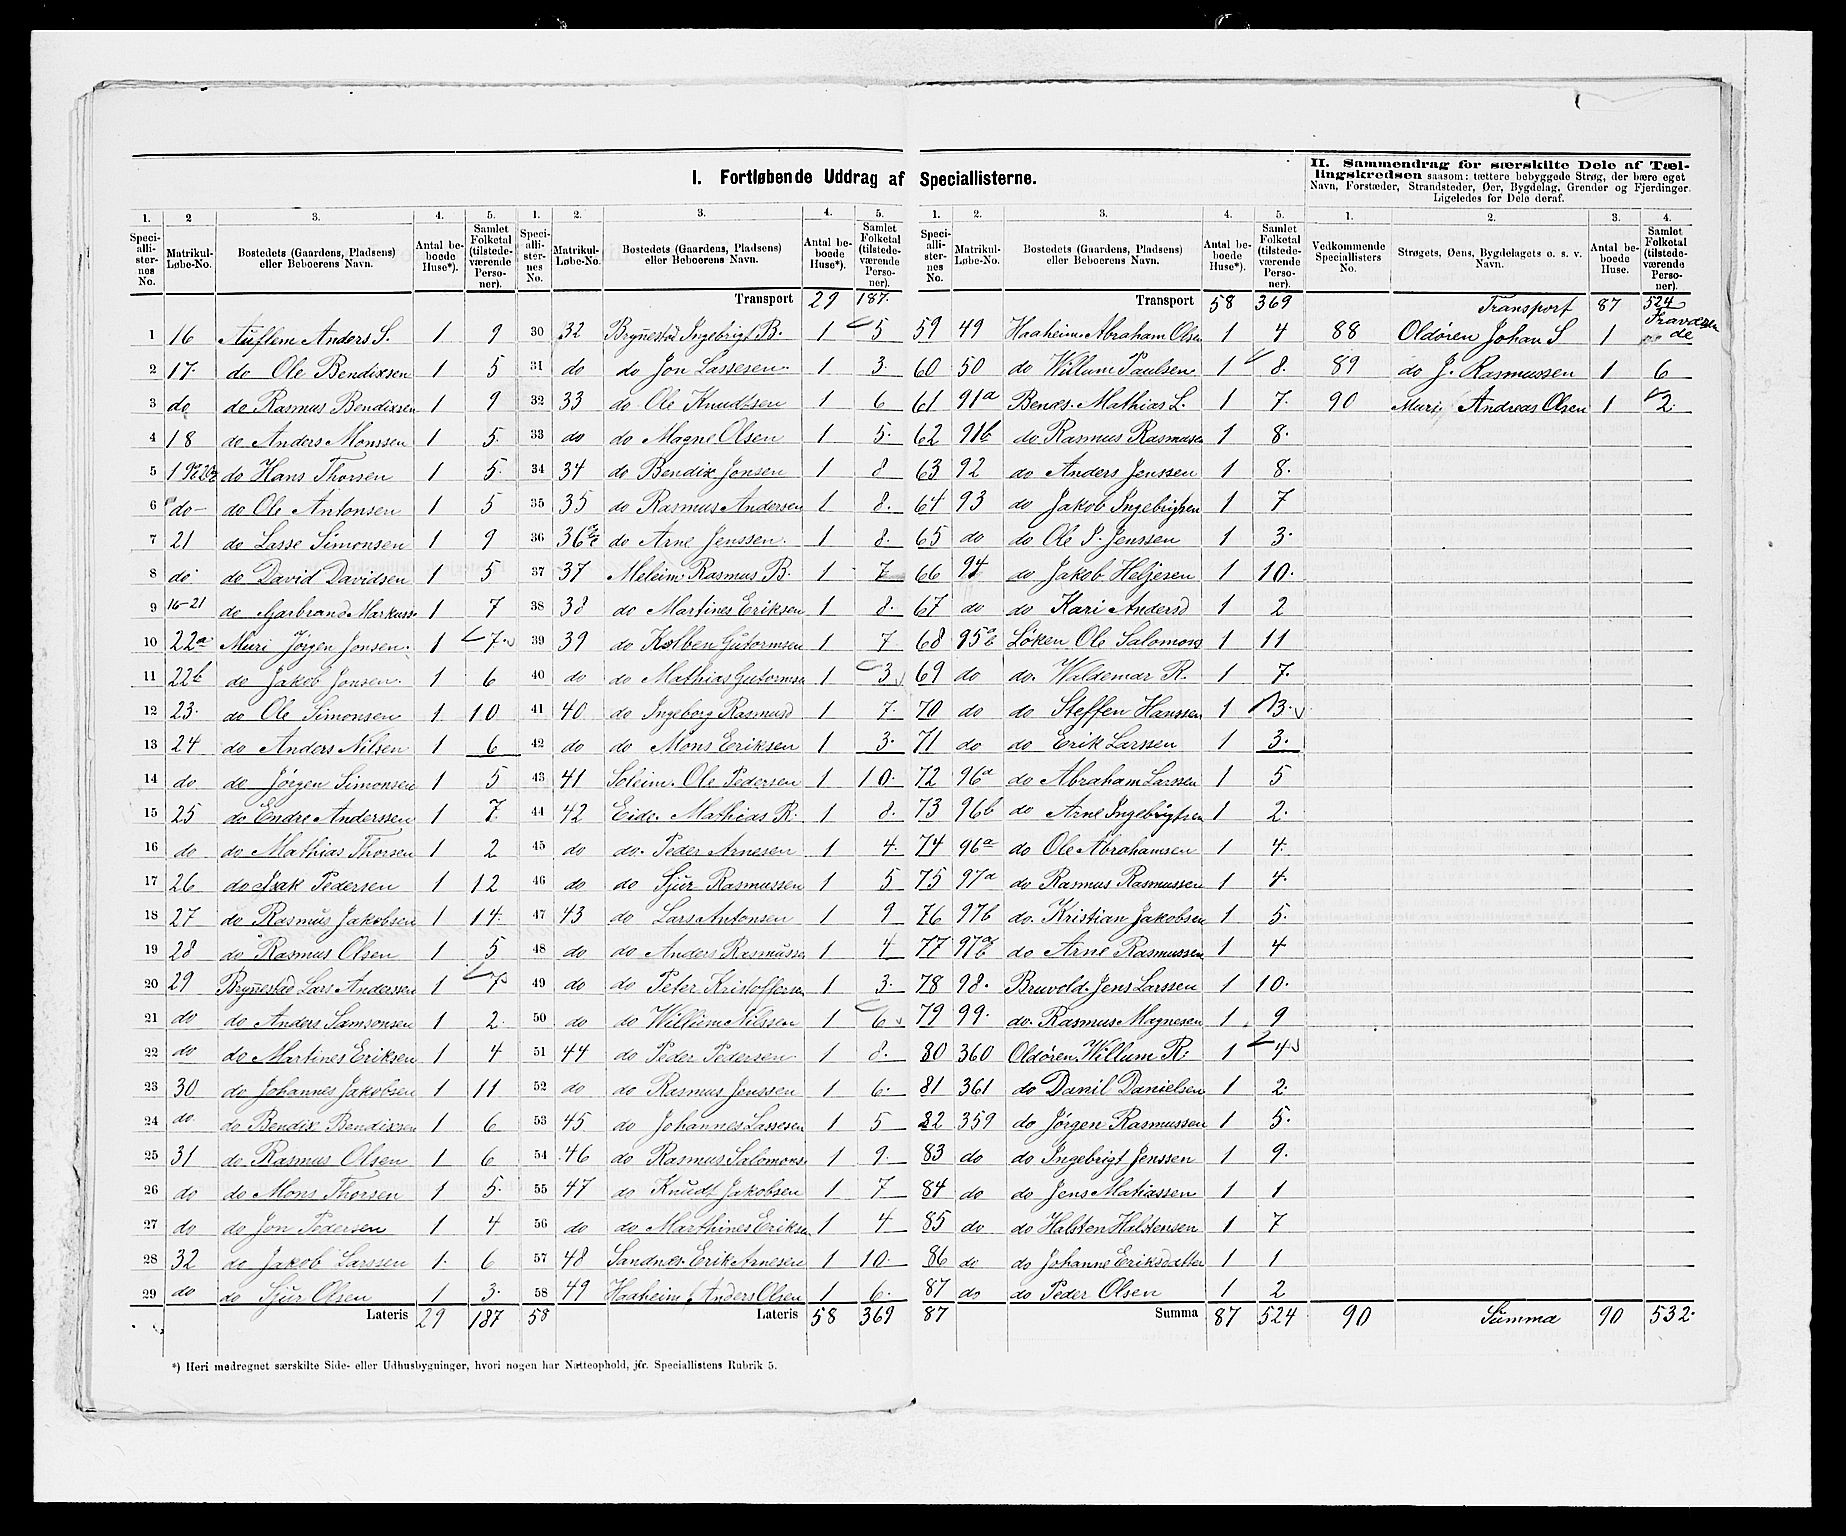 I. Fortløbende Uddrag af Speciallisterne.
II. Sammendrag for særskilte Dele af Tæl-
lingskredsen saasom: tættere bebyggede Strøg, der bære eget
Navn, Forstæder, Strandsteder, Øer, Bygdelag, Grender og Fjerdinger.
Ligeledes for Dele deraf.
1. 2 3. 4. 5.
Speciallisternes No. Matrikul-Løbe-No. Bostedets (Gaardens, Pladsens) eller Beboerens Navn. Antal beboede Huse*). Samlet Folketal (tilstedeværende Personer).
1 16 Anders S. 1 9
2 17. do Ole Bendixsen 1 5
3 do do Rasmus Bendixsen 1 9
4 18 do Anders Monssen 1 5.
5 do Hans Thorsen 1 5.
6 do do Ole Antonsen 1 5
7 21 do Lasse Simonsen 1 9
8 do do David Davidsen 1 5
9 16-21 do Garbrand Markuss 1 7
10 22a Muri Jörgen Jonsen. 1 7.
11 22b do Jakob Jonsen. 1 6
12 23. do Ole Simonsen 1 10
13 24 do Anders Nilsen 1 6
14 do do Jörgen Simonsen 1 5
15 25 do Endre Anderssen 1 7.
16 do do Mathias Thorsen 1 2
17 26 do Isak Pedersen 1 12
18 27 do Rasmus Jakobsen 1 14.
19 28 do Rasmus Olsen 1 5
20 29 Brynestad Lars Anderssen 1 7
21 do do Anders Samsonsen 1 2.
22 do do Martines Eriksen 1 4
23 30 do Johannes Jakobsen 1 11
24 do do Bendix Bendixsen 1 6
25 31 do Rasmus Olsen 1 6
26 do do Mons Thorsen 1 5.
27 do do Jon Pedersen 1 4
28 32 do Jakob Larssen 1. 6
29 do do Sjur Olsen 1 3.
Lateris 29 187
1. 2. 3. 4. 5.
Speciallisternes No. Matrikul-Løbe-No. Bostedets (Gaardens, Pladsens) eller Beboerens Navn. Antal beboede Huse*). Samlet Folketal (tilstedeværende Personer).
Transport 29 187.
30 32 Brynestad Ingebrigt B. 1 5
31 do do Jon Lassesen. 1 3.
32 33 do Ole Knudtsen 1 6
33 do do Magne Olsen 1 5.
34 34 do Bendix Jonsen 1 8
35 35 do Rasmus Andersen 1 8.
36 do Arne Jenssen. 1 8.
37 37 Meleim Rasmus B. 1 7
38 38 do Martines Eriksen 1 8.
39 39 do Kolben Gutormsen 1 7
40 do do Mathias Gutormsen 1 3
41 40 do Ingeborg Rasmusd 1 7.
42 do do Mons Eriksen 1 3.
43 41 Soleim. Ole Pedersen 1 10.
44 42 Eide. Mathias R. 1 8.
45 do do. Peder Arnesen 1 4.
46 do do Sjur Rasmussen 1 5
47 43 do Lars Antonsen 1 9
48 do do Anders Rasmussen 1 4
49 do do Peter Kristoffersen 1 3.
50 do do Willum Nilssen 1 6
51 44 do Peder Pedersen 1 8.
52 do do Rasmus Jenssen 1 6.
53 45 do Johannes Lassesen 1 5
54 46 do Rasmus Salomons. 1 9.
55 47 do Knudt Jakobsen 1 7
56 do do Marthines Eriksen 1 4
57 48 Sandnes. Erik Arnesen 1 10.
58 49 Haaheim Anders Olsen 1 6.
58 Lateris 58 369
1. 2. 3. 4. 5.
Speciallisternes No. Matrikul-Løbe-No. Bostedets (Gaardens, Pladsens) eller Beboerens Navn. Antal beboede Huse*). Samlet Folketal (tilstedeværende Personer).
Transport 58 369
59 49 Haaheim Abraham Olsen 1 4
60 50 do Willum Paulsen 1 8.
61 91a Benæs. Mathias L. 1 7.
62 91b do Rasmus Rasmusen 1 8.
63 92 do Anders Jenssen 1 8.
64 93 do Jakob Ingebrigtsen 1 7
65 do do Ole P. Jenssen 1 3.
66 94 do Jakob Heljesen 1 10.
67 do do Kari Andersd 1 2
68 Löken Ole Salomons 1 11
69 do do. Waldemar R. 1 7.
70 do do Steffen Hanssen 1 3.
71 do do Erik Larssen 1 3.
72 96a do Abraham Larssen 1 5
73 96b do Arne Ingebrigtsen 1 2.
74 96a do Ole Abrahamsen 1 4.
75 97a do Rasmus Rasmussen 1 4.
76 97b do. Kristian Jakobsen 1 5.
77 do Arne Rasmussen 1 4
78 98. Bruvold. Jens Larssen 1 10.
79 99. do. Rasmus Magnesen 1 9
80 360 Oldören Willum R. 1 4
81 361 do Danil Danielsen 1 2.
82 359 do Jörgen Rasmussen 1 5.
83 do do Ingebrigt Jenssen 1 9.
84 do do Jens Matiassen 1 1
85 do do Halsten Halstensen 1 7
86 do do Johanne Eriksdatter 1 1
87 do do Peder Olsen 1 2
87 Summa 87 524
1. 2. 3. 4.
Vedkommende Speciallisters No. Strøgets, Øens, Bygdelagets o. s. v. Navn. Antal beboede Huse. Samlet Folketal (tilstedeværende Personer).
Transport 87 524
88 Oldören Johan S 1
89 do J. Rasmussen 1 6
90 Muri Andreas Olsen 1 2.
90 Summa 90 532.
*) Heri medregnet særskilte Side- eller Udhusbygninger, hvori nogen har Natteophold, jfr. Speciallistens Rubrik 5.